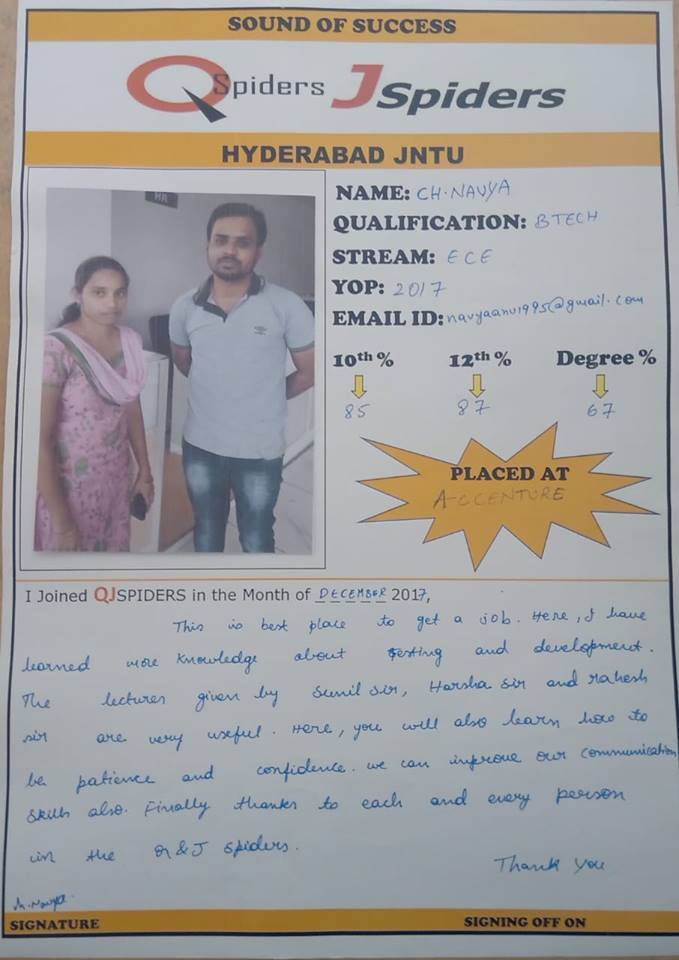 SOUND OF SUCCESS
QSpiders JSpiders
HYDERABAD JNTU
HR
NAME: CH.NAVYA
QUALIFICATION: BTECH
STREAM: ECE
YOP: 2017
EMAIL ID: navyaanu1995@gmail.com
10th % 12th % Degree %
85 87 67
PLACED AT
ACCENTURE
I Joined QJSPIDERS in the Month of DECEMBER 2017,
This is best place to get a job. Here, I have
learned more knowledge about testing and development.
The lectures given by Sunil sir, Harsha sir and rakesh
sir are very useful. Here, you will also learn how to
be patience and confidence. we can improve our communication
skills also. Finally thanks to each and every person
in the Q & J spiders.
Thank you
ch. Navya.
SIGNATURE SIGNING OFF ON